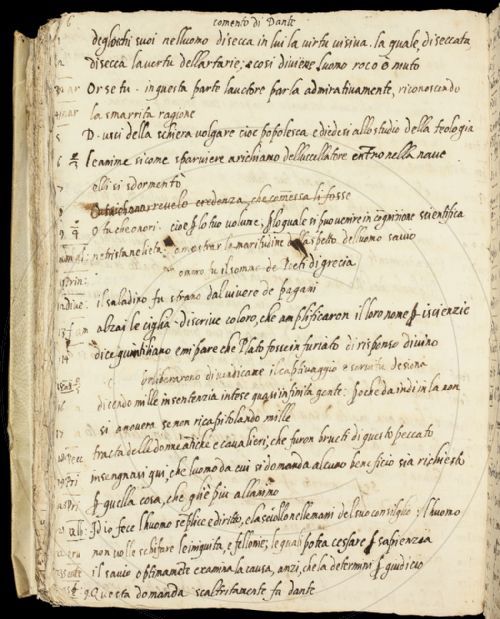 6 comento di Dante
degl'occhi suoi nell'uomo disecca in lui la virtu visiva. la quale, diseccata
disecca la vertu dell'artarie; e cosi diviene l'uomo roco o muto
Or se tu - in questa parte l'auctore parla admirativamente, riconoscendo
la smarrita ragione
5 D. usci della schiera volgare cioe popolesca e diedesi allo studio della teologia
6 le anime si come sparviere a richiamo dell'uccellatore entro nella nave
7 elli si sdormento
credenza, che comessa li fosse
9 O tu che onori. cioe p lo tuo volume, p lo quale si puo venire in cognitione scientifica
ne trista ne lieta: a mostrar la maritudine dell'aspetto dell'uomo savio
omero fu il somno de Poeti di grecia
il saladino fu strano dal vivere de pagani
alzai le ciglia - discrive coloro, che amplificaron il loro nome p iscienzie
14 dice quintiliano e mi pare che Plato fosse infuriato di risponso divino
diliberarono di vendicare il captivaggio e servitu
dicendo mille in sentenzia intese quasi infinita gente: poche da indi in la non
si anovera se non ricapitolando mille
tracta delle donne antiche e cavalieri, che furon bructi di questo peccato
insegnasi qui, che l'uomo da cui si domanda alcuno beneficio sia richiesto
p quella cosa, che gli è piu all'animo
Idio fece l'huomo seplice e diritto, e lasciollo nelle mani del suo consiglio: l'huomo
non volle schifare le iniquita, e fellonie; le quali potea cessare p sapienzia
il savio optimamete examina la causa, anzi, che la determini p giudicio
Questa domanda scaltritamente fa dante